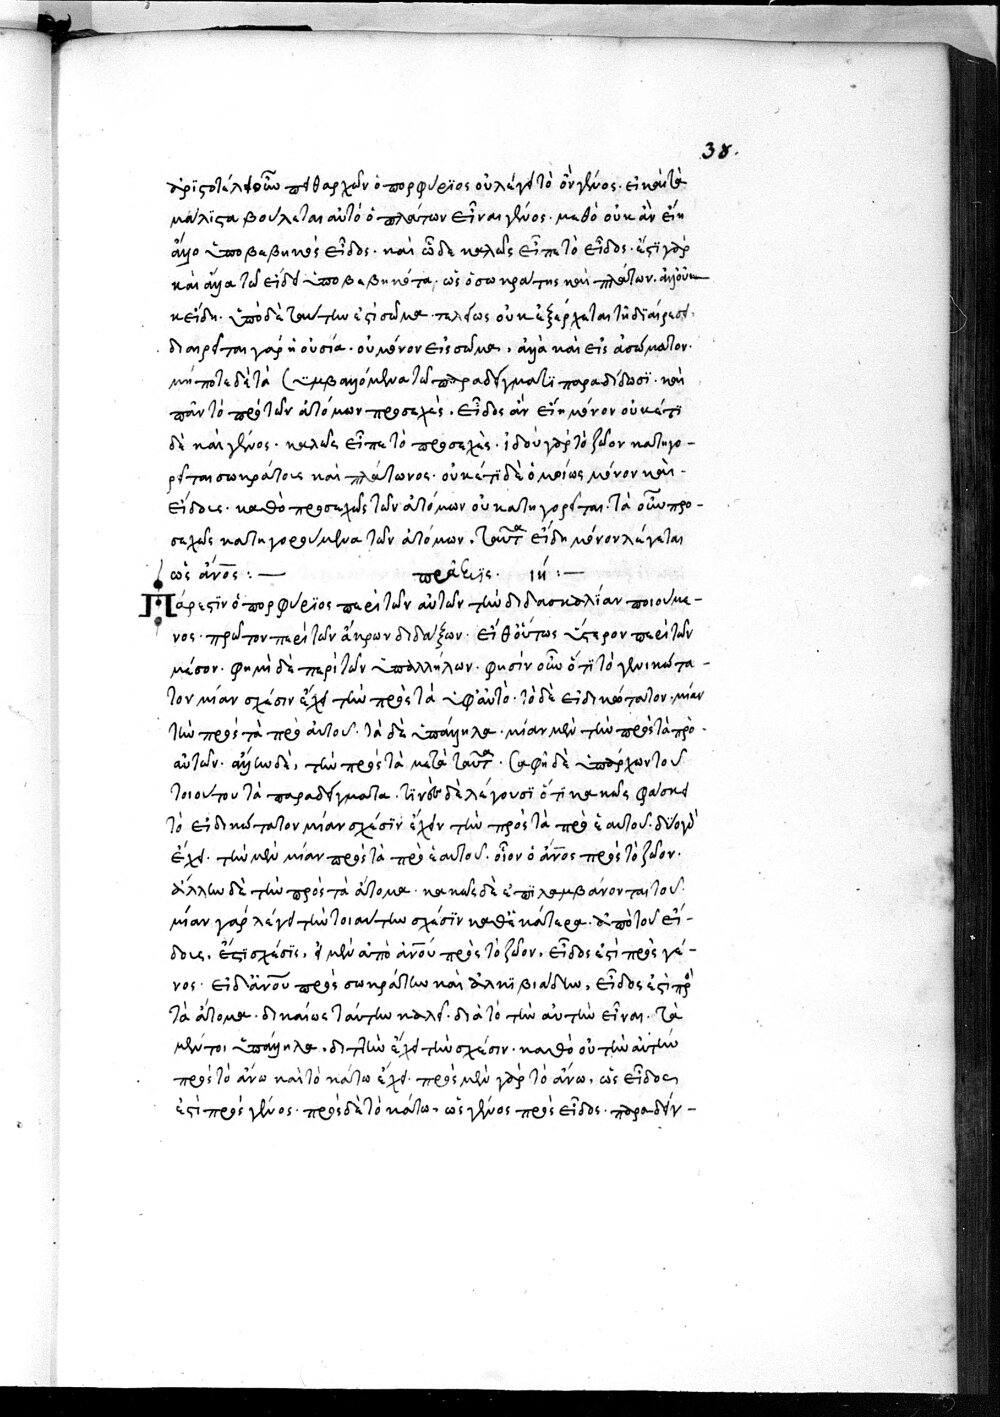 38.
ἀριστοτέλει οὖν πειθαρχῶν ὁ πορφύριος οὐ λέγει τὸ ὂν γένος. εἰ καὶ τὰ
μάλιστα βούλεται αὐτὸ ὁ πλάτων εἶναι γένος. καθὸ οὐκ ἂν εἴη
ἄλλο ὑποβεβηκὸς εἶδος. καὶ ὧδε καλῶς εἶπε τὸ εἶδος. ἔστι γὰρ
καὶ ἄλλα τῶ εἴδει ὑποβεβηκότα. ὡς ὁ σωκράτης καὶ πλάτων. ἀλλ' οὐκ
εἴδη. ὑπὸ δὲ ταύτην ἐστὶ σῶμα. τελείως οὐκ ἐξέρχεται τῆ διαιρέσει.
διαιρεῖται γὰρ ἡ οὐσία. οὐ μόνον εἰς σῶμα, ἀλλὰ καὶ εἰς ἀσώματον.
μήποτε δὲ τὰ συμβαλλόμενα τῶ παραδείγματι παραδίδωσι. καὶ
πᾶν τὸ πρὸ τῶν ἀτόμων προσεχὲς, εἶδος ἂν εἴη μόνον οὐκέτι
δὲ καὶ γένος. καλῶς εἶπε τὸ προσεχὲς. ἰδοὺ γὰρ τὸ ζῶον κατηγο-
ρεῖται σωκράτους καὶ πλάτωνος. οὐκέτι δὲ ὁμοίως μόνον καὶ
εἴδους. καθὸ προσεχῶς τῶν ἀτόμων οὐ κατηγορεῖται. τὰ οὖν προ-
σεχῶς κατηγορούμενα τῶν ἀτόμων, ταῦτα εἴδη μόνον λέγεται
ὡς ἄνος : — πρᾶξις. ιή : —
Πάρεστιν ὁ πορφύριος περὶ τῶν αὐτῶν τὴν διδασκαλίαν ποιούμε
νος. πρῶτον περὶ τῶν ἄκρων διδάξων. εἶθ' οὕτως ὕστερον περὶ τῶν
μέσον. φημὶ δὲ περὶ τῶν ὑπαλλήλων. φησὶν οὖν ὅτι τὸ γενικώτα-
τον μίαν σχέσιν ἔχει τὴν πρὸς τὰ ὑφ' αὑτὸ. τὸ δὲ εἰδικώτατον. μίαν
τὴν πρὸς τὰ πρὸ αὐτοῦ. τὰ δὲ ὑπάλληλα. μίαν μὲν τὴν πρὸς τὰ πρὸ.
αὐτῶν. ἄλλην δὲ, τὴν πρὸς τὰ μετὰ ταῦτα. σαφῆ δὲ ὑπάρχων τοῦ
τοιούτου τὰ παραδείγματα. τινὲς δὲ λέγουσι ὅτι κακῶς φάσκει
τὸ εἰδικώτατον μίαν σχέσιν ἔχειν τὴν πρὸς τὰ πρὸ ἑαυτοῦ. δύο γὰρ
ἔχει. τὴν μὲν μίαν πρὸς τὰ πρὸ ἑαυτοῦ. οἷον ὁ ἄνος πρὸς τὸ ζῶον.
ἄλλην δὲ τὴν πρὸς τὰ ἄτομα. κακῶς δὲ ἐπιλαμβάνονται τοῦ
μίαν γὰρ λέγει τὴν τοιαύτην σχέσιν καθ' ἑκάτερα. ἀπὸ τοῦ εἴ-
δους, ἔστι σχέσις, εἰ μὲν ἀπὸ ἀνου πρὸς τὸ ζῶον, εἶδος ἐστὶ πρὸς γέ-
νος. εἰ δ' ἀνου πρὸς σωκράτην καὶ ἀλκιβιάδην, εἶδος ἐστὶ πρὸς
τὰ ἄτομα. δικαίως ταύτην καλεῖ. διὰ τὸ τὴν αὐτὴν εἶναι. τὰ
μέντοι ὑπάλληλα, διττὴν ἔχει τὴν σχέσιν. καθὸ οὐ τὴν αὐτὴν
πρὸς τὸ ἄνω καὶ τὸ κάτω ἔχει. πρὸς μὲν γὰρ τὸ ἄνω, ὡς εἶδος
ἐστὶ πρὸς γένος. πρὸς δὲ τὸ κάτω, ὡς γένος πρὸς εἶδος. παραδείγ-